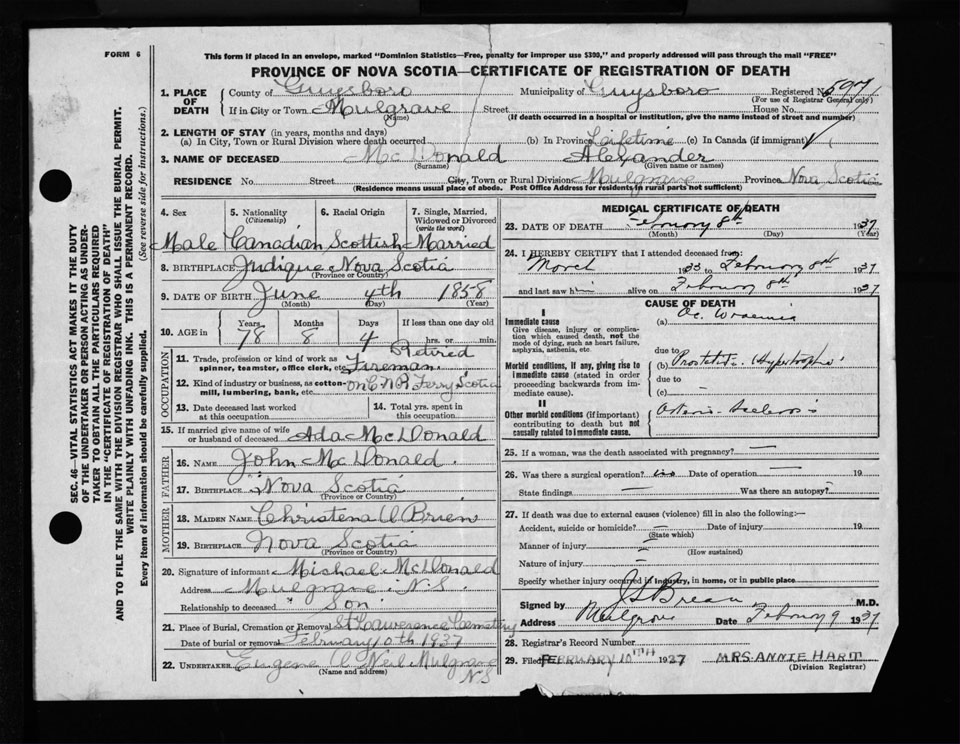 FORM 6
This form if placed in an envelope, marked "Dominion Statistics—Free, penalty for improper use $300," and properly addressed will pass through the mail "FREE"
PROVINCE OF NOVA SCOTIA—CERTIFICATE OF REGISTRATION OF DEATH
1. PLACE OF DEATH
County of Guysboro Municipality of Guysboro Registered No. 597
(For use of Registrar General only)
If in City or Town Mulgrave Street House No.
(Name) (If death occurred in a hospital or institution, give the name instead of street and number)
2. LENGTH OF STAY (in years, months and days)
(a) In City, Town or Rural Division where death occurred (b) In Province Lifetime (c) In Canada (if immigrant)
3. NAME OF DECEASED McDonald Alexander
(Surname) (Given name or names)
RESIDENCE No. Street City, Town or Rural Division Mulgrave Province Nova Scotia
(Residence means usual place of abode. Post Office Address for residents in rural parts not sufficient)
4. Sex 5. Nationality (Citizenship) 6. Racial Origin 7. Single, Married, Widowed or Divorced (write the word)
Male Canadian Scottish Married
8. BIRTHPLACE Judique Nova Scotia
(Province or Country)
9. DATE OF BIRTH June 4th 1858
(Month) (Day) (Year)
10. AGE in Years Months Days If less than one day old
78 8 4 hrs. or min.
OCCUPATION
11. Trade, profession or kind of work as spinner, teamster, office clerk, etc. Retired Fireman
12. Kind of industry or business, as cotton-mill, lumbering, bank, etc. on C N R Ferry Scotia
13. Date deceased last worked at this occupation
14. Total yrs. spent in this occupation
15. If married give name of wife or husband of deceased Ada McDonald
FATHER
16. NAME John McDonald
17. BIRTHPLACE Nova Scotia
(Province or Country)
MOTHER
18. MAIDEN NAME Christena O Brien
19. BIRTHPLACE Nova Scotia
(Province or Country)
20. Signature of informant Michael McDonald
Address Mulgrave N.S.
Relationship to deceased Son
21. Place of Burial, Cremation or Removal St Lawerence Cemetery
Date of burial or removal February 10th 1937
22. UNDERTAKER Eugene O Neil Mulgrave N S
(Name and address)
MEDICAL CERTIFICATE OF DEATH
23. DATE OF DEATH 8th 1937
(Month) (Day) (Year)
24. I HEREBY CERTIFY that I attended deceased from:
March 1933 to February 8th 1937
and last saw him alive on February 8th 1937
CAUSE OF DEATH
I
Immediate cause (a) Ac. Uraemia
Give disease, injury or complication which caused death, not the mode of dying, such as heart failure, asphyxia, asthenia, etc.
due to
Morbid conditions, if any, giving rise to immediate cause (stated in order proceeding backwards from immediate cause).
(b) Prostatic Hypertrophy
due to
(c)
II
Other morbid conditions (if important) contributing to death but not causally related to immediate cause.
Arterio-Sclerosis
25. If a woman, was the death associated with pregnancy?
26. Was there a surgical operation? no Date of operation 19
State findings Was there an autopsy?
27. If death was due to external causes (violence) fill in also the following:—
Accident, suicide or homicide? Date of injury 19
(State which)
Manner of injury
(How sustained)
Nature of injury
Specify whether injury occurred in industry, in home, or in public place
Signed by M.D.
Address Mulgrave Date February 9 1937
28. Registrar's Record Number
29. Filed FEBRUARY 10TH 1937 MRS. ANNIE HART
(Division Registrar)
SEC. 46—VITAL STATISTICS ACT MAKES IT THE DUTY
OF THE UNDERTAKER OR PERSON ACTING AS UNDER-
TAKER TO OBTAIN ALL THE PARTICULARS REQUIRED
IN THE "CERTIFICATE OF REGISTRATION OF DEATH"
AND TO FILE THE SAME WITH THE DIVISION REGISTRAR WHO SHALL ISSUE THE BURIAL PERMIT.
WRITE PLAINLY WITH UNFADING INK. THIS IS A PERMANENT RECORD.
Every item of information should be carefully supplied.
(See reverse side for instructions.)